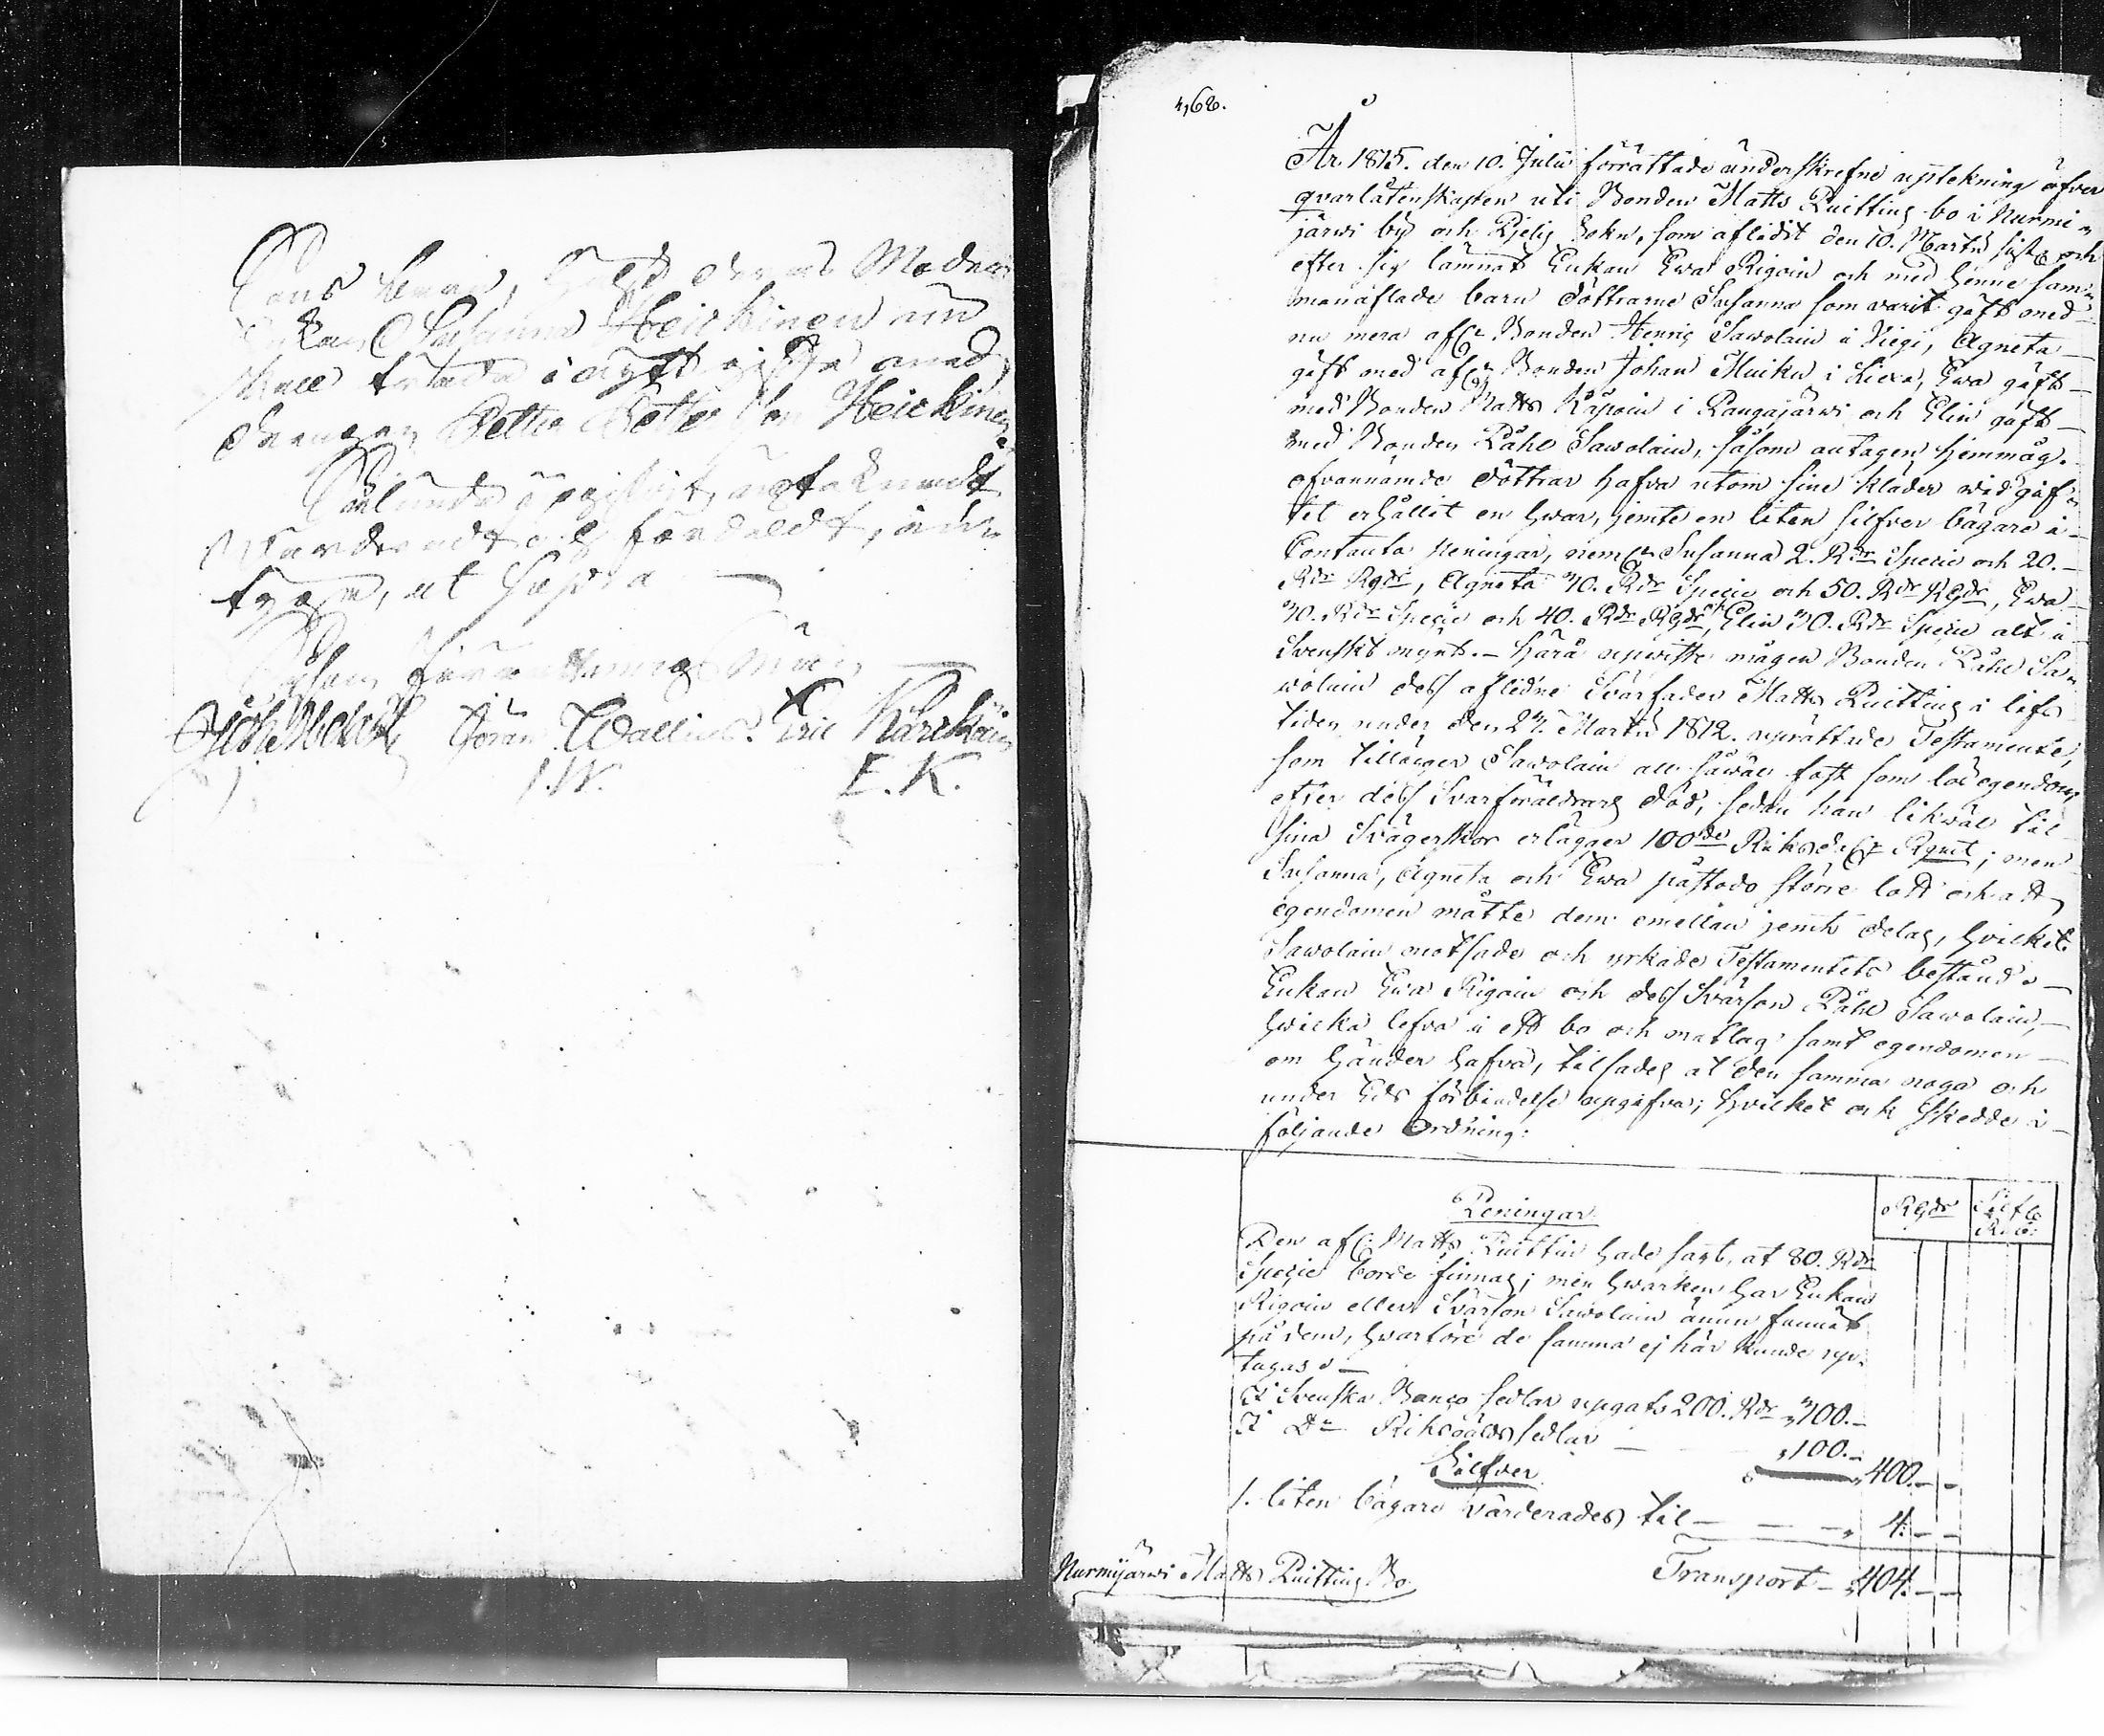 Moder
Enkan Susanna Heickinen
skall träda i nytt gifte med
drengen Petter Petters son Heickinen
Sålunda
tyga, et supra
Såsom Värderingsmän
Jöran Wallius. Eric Karskain
J.W. E.K.
462.
År 1815. den 10. Julii förrättade underskrefne uptekning öfver
qvarlåtenskapen uti Bonden Matts Quitting bo i Nurmi
järwi by och Pjelis Sokn, som aflidit den 10. Martii sistl. och
efter sig lämnat Enkan Ewa Rigoin och med henne sam-
manaflade barn döttrarne Susanna som varit gift med
nu mera afl. Bonden Henric Sawolain i Viegi, Agneta
gift med afl. Bonden Johan Muiku i Liexa, Ewa gift
med Bonden Matts Räpoin i Pangajärwi och Elin gift
med Bonden Påhl Sawolain, såsom antagen hemmåg.
ofvannämde döttrar hafva utom sine kläder wid gif-
tet erhållit en hwar, jemte en liten silfver bägare i
Contanta peningar, neml. Susanna 2. Rdr Specie och 20.
Rdr Rgds, Agneta 30. Rdr Specie och 50. Rdr Rgds, Ewa
30. Rdr Specie och 40. Rdr Rgds, och Elin 30. Rdr Specie alt i
Svenskt mynt. - Härå upwiste mågen Bonden Påhl Sa-
wolain dess aflidne Svärfader Matts Quitting i lifs
tiden under den 27. Martii 1812. uprättade Testamente,
som tillägger Sawolain all såwäl fast som lös egendom
efter dess Svärföräldrars död, sedan han likwäl til
sina Svägerskor erlägger 100de Riksdlr Rgds; men
Susanna, Agneta och Ewa påstodo större lott och att
egendomen måtte dem emellan jemt delas, hvilket
Sawolain motsade och yrkade Testamentets bestånd.
Enkan Ewa Rigoin och dess Svärson Påhl Sawolain,
hwilka lefva i ett bo och matlag samt egendomen
om händer hafva, tilsades at den samma noga och
under Eds förbindelse upgifva; hvilket ock skedde i
följande Ordning:
Peningar Rgds Silfv.
Den afl. Matts Quittin hade sagt, at 80. Rdr
Specie borde finnas; men hwarken har Enkan
Rigoin eller Svärson Sawolain ännu funnit
på dem, hwarföre de samma ej här kunde up-
tagas. -
I Svenska Banco sedlar upgafs 200. Rdr 300. -
I Do Riksgälds sedlar - 100. - 400. - -
Silfver
1. liten bägare värderades til - - - 4. - -
Nurmijärwi Matts Quitting Bo. Transport - 404. - -